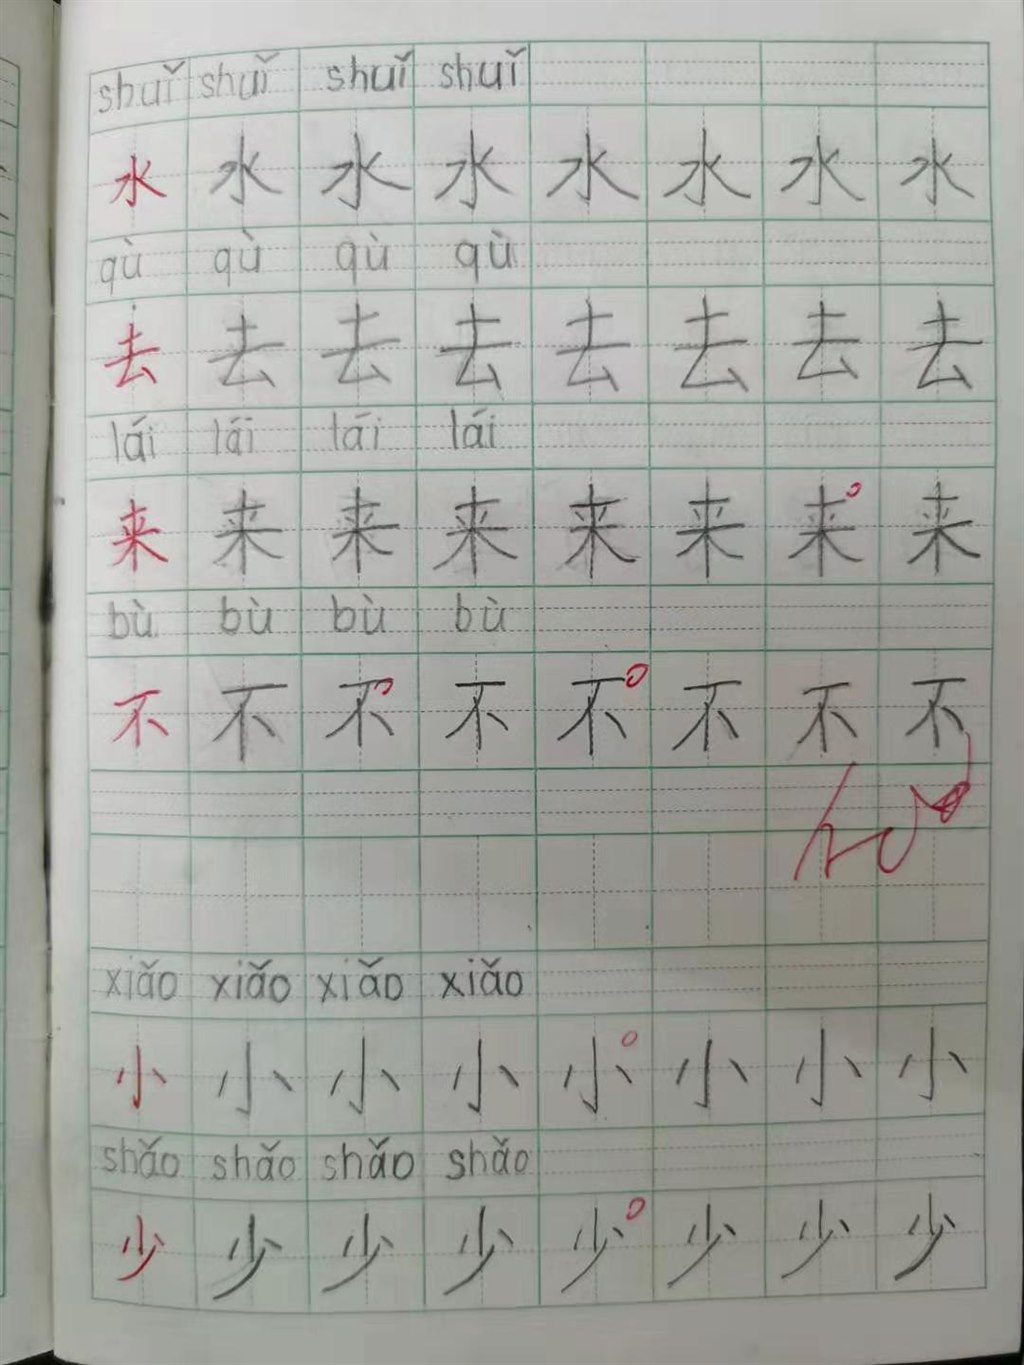 shuǐ shuǐ shuǐ shuǐ
水 水 水 水 水 水 水 水
qù qù qù qù
去 去 去 去 去 去 去 去
lái lái lái lái
来 来 来 来 来 来 来 来
bù bù bù bù
不 不 不 不 不 不 不 不
xiǎo xiǎo xiǎo xiǎo
小 小 小 小 小 小 小 小
shǎo shǎo shǎo shǎo
少 少 少 少 少 少 少 少